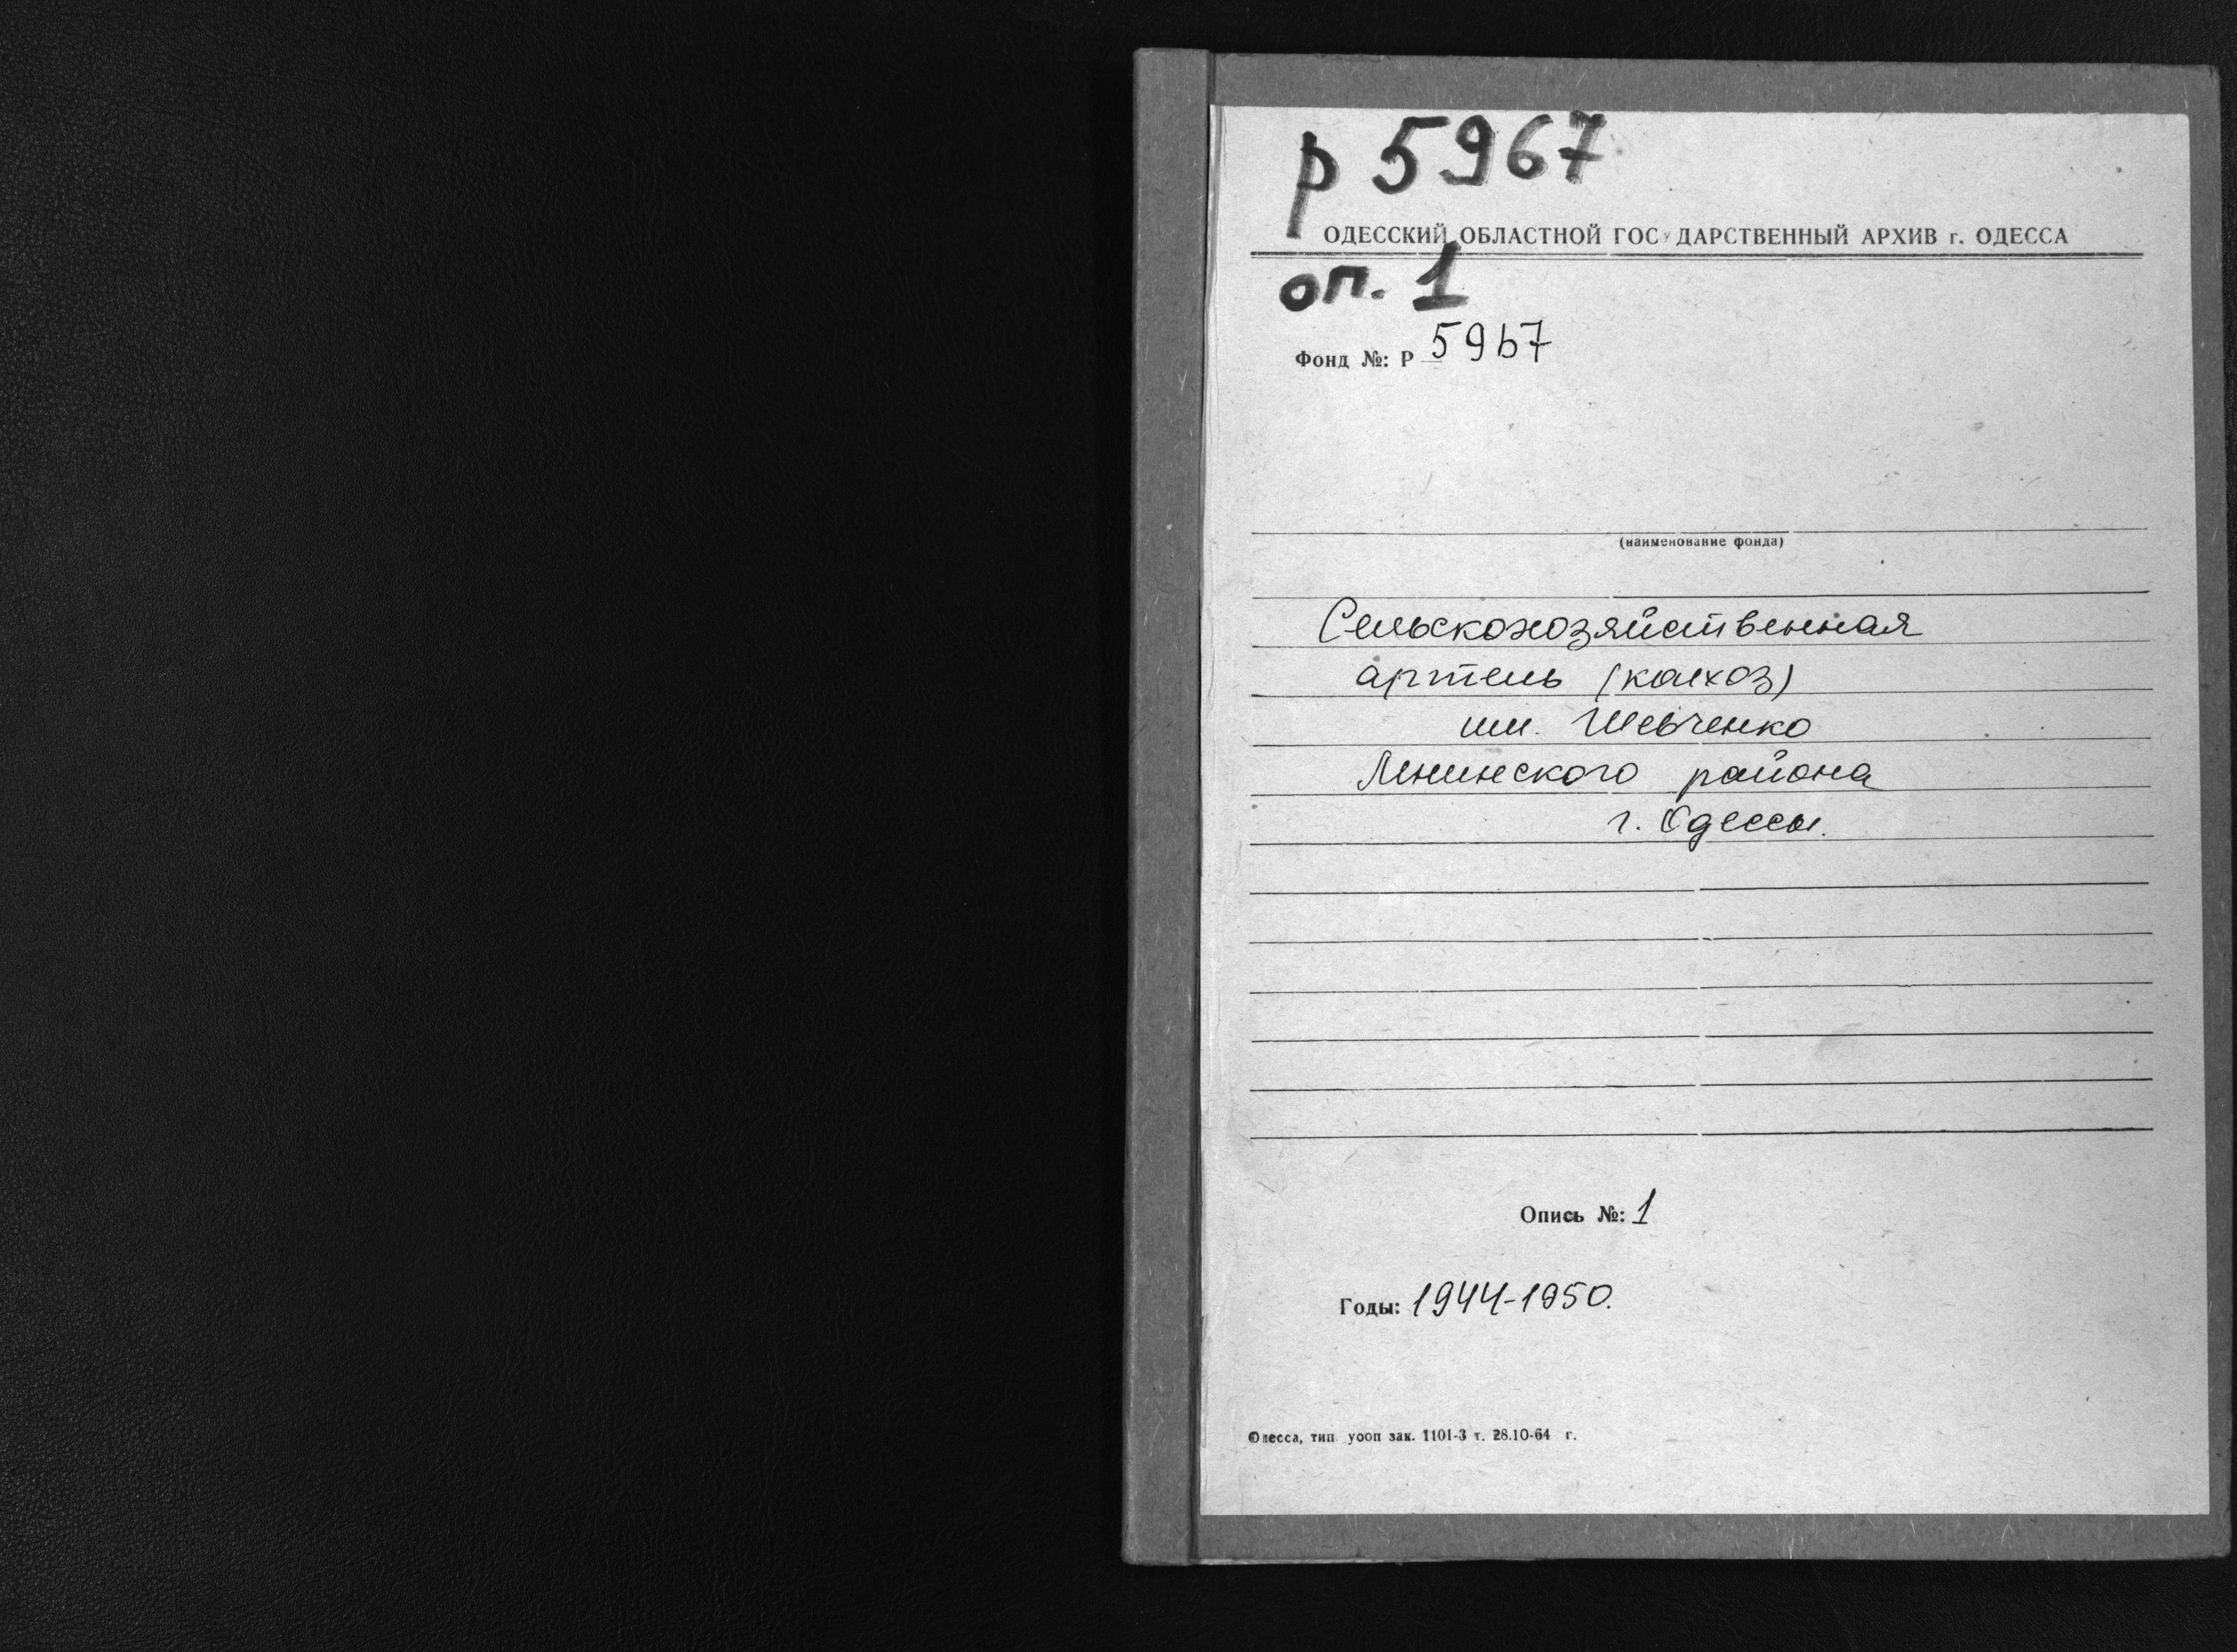 р 5967
ОДЕССКИЙ ОБЛАСТНОЙ ГОСУДАРСТВЕННЫЙ АРХИВ г. ОДЕССА
оп. 1
Фонд №: Р 5967
(наименование фонда)
Сельскохозяйственная
артель (колхоз)
им. Шевченко
Ленинского района
г. Одессы.
Опись №: 1
Годы: 1944-1950.
Одесса, тип. уооп зак. 1101-3 т. 28.10-64 г.